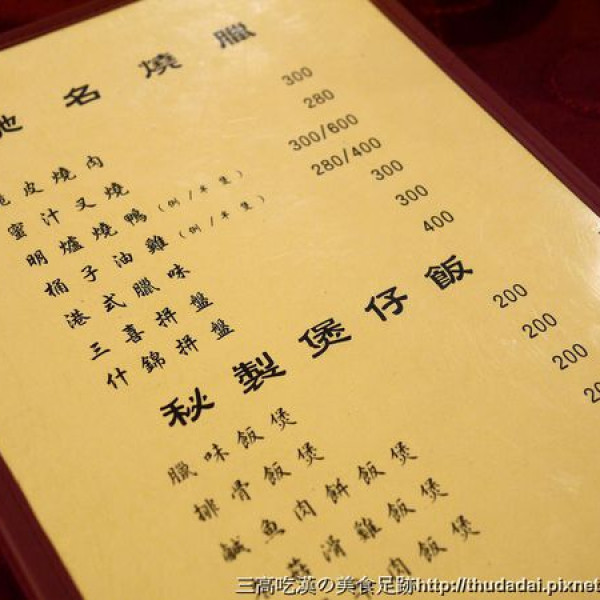 地名燒臘
脆皮燒肉 300
蜜汁叉燒 280
明爐燒鴨(例/半隻) 300/600
桶子油雞(例/半隻) 280/400
港式臘味 300
三喜拼盤 300
什錦拼盤 400
秘製煲仔飯
臘味飯煲 200
排骨飯煲 200
鹹魚肉餅飯煲 200
菇滑雞飯煲
肉飯煲
三高吃漢の美食足跡http://thudadai.pixnet